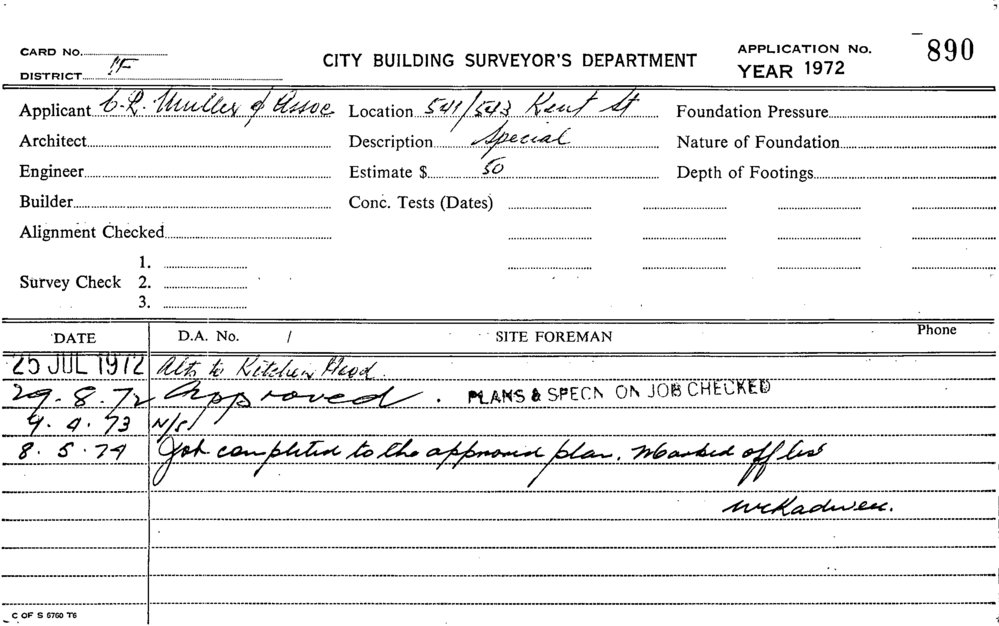 CARD No.
DISTRICT 1F
CITY BUILDING SURVEYOR'S DEPARTMENT
APPLICATION No. 890
YEAR 1972
Applicant C. R. Muller & Assoc
Location 541/543 Kent St
Foundation Pressure
Architect
Description Special
Nature of Foundation
Engineer
Estimate $ 50
Depth of Footings
Builder
Conc. Tests (Dates)
Alignment Checked
Survey Check 1.
2.
3.
DATE D.A. No. / SITE FOREMAN Phone
25 JUL 1972 Alts to Kitchen Hood.
29.8.72 Approved. PLANS & SPECN ON JOB CHECKED
4.4.73 N/S
8.5.74 Job completed to the approved plan. Marked off
C OF S 6760 T6